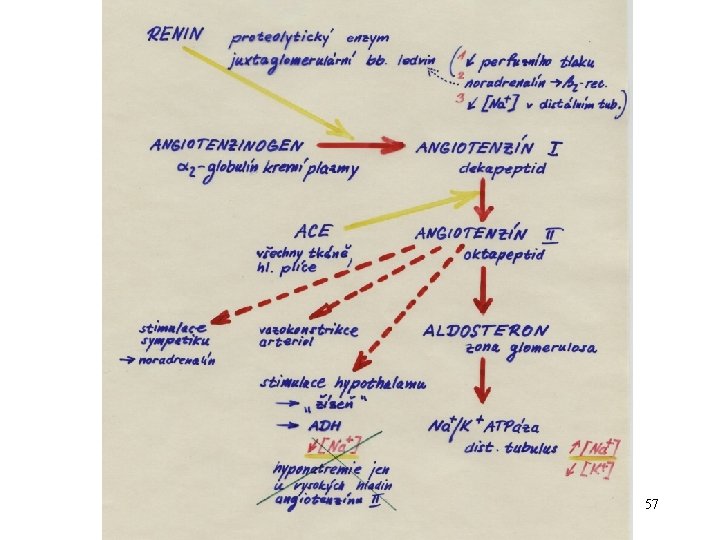 RENIN proteolytický enzym
juxtaglomerulární bb. ledvin
( 1 ↙ perfuzního tlaku
2 noradrenalin → β2-rec.
3 ↙ [Na+] v distálním tub.)
ANGIOTENZINOGEN → ANGIOTENZÍN I
α2-globulín krevní plasmy
dekapeptid
ACE
všechny tkáně,
hl. plíce
ANGIOTENZÍN II
oktapeptid
stimulace
sympatiku
→ noradrenalín
vazokonstrikce
arteriol
ALDOSTERON
zona glomerulosa
stimulace hypothalamu
→ „žízeň“
→ ADH
↙[Na+]
hyponatremie jen
u vysokých hladin
angiotenzínu II
Na+/K+ ATPáza
dist. tubulus ↑[Na+]
↙[K+]
57